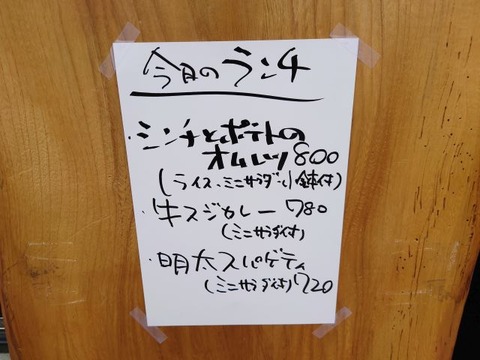 今日のランチ
・ミンチとポテトの
オムレツ 800
(ライス、ミニサラダ・小鉢付)
・牛スジカレー 780
(ミニサラダ付)
・明太スパゲティ
(ミニサラダ付) 720